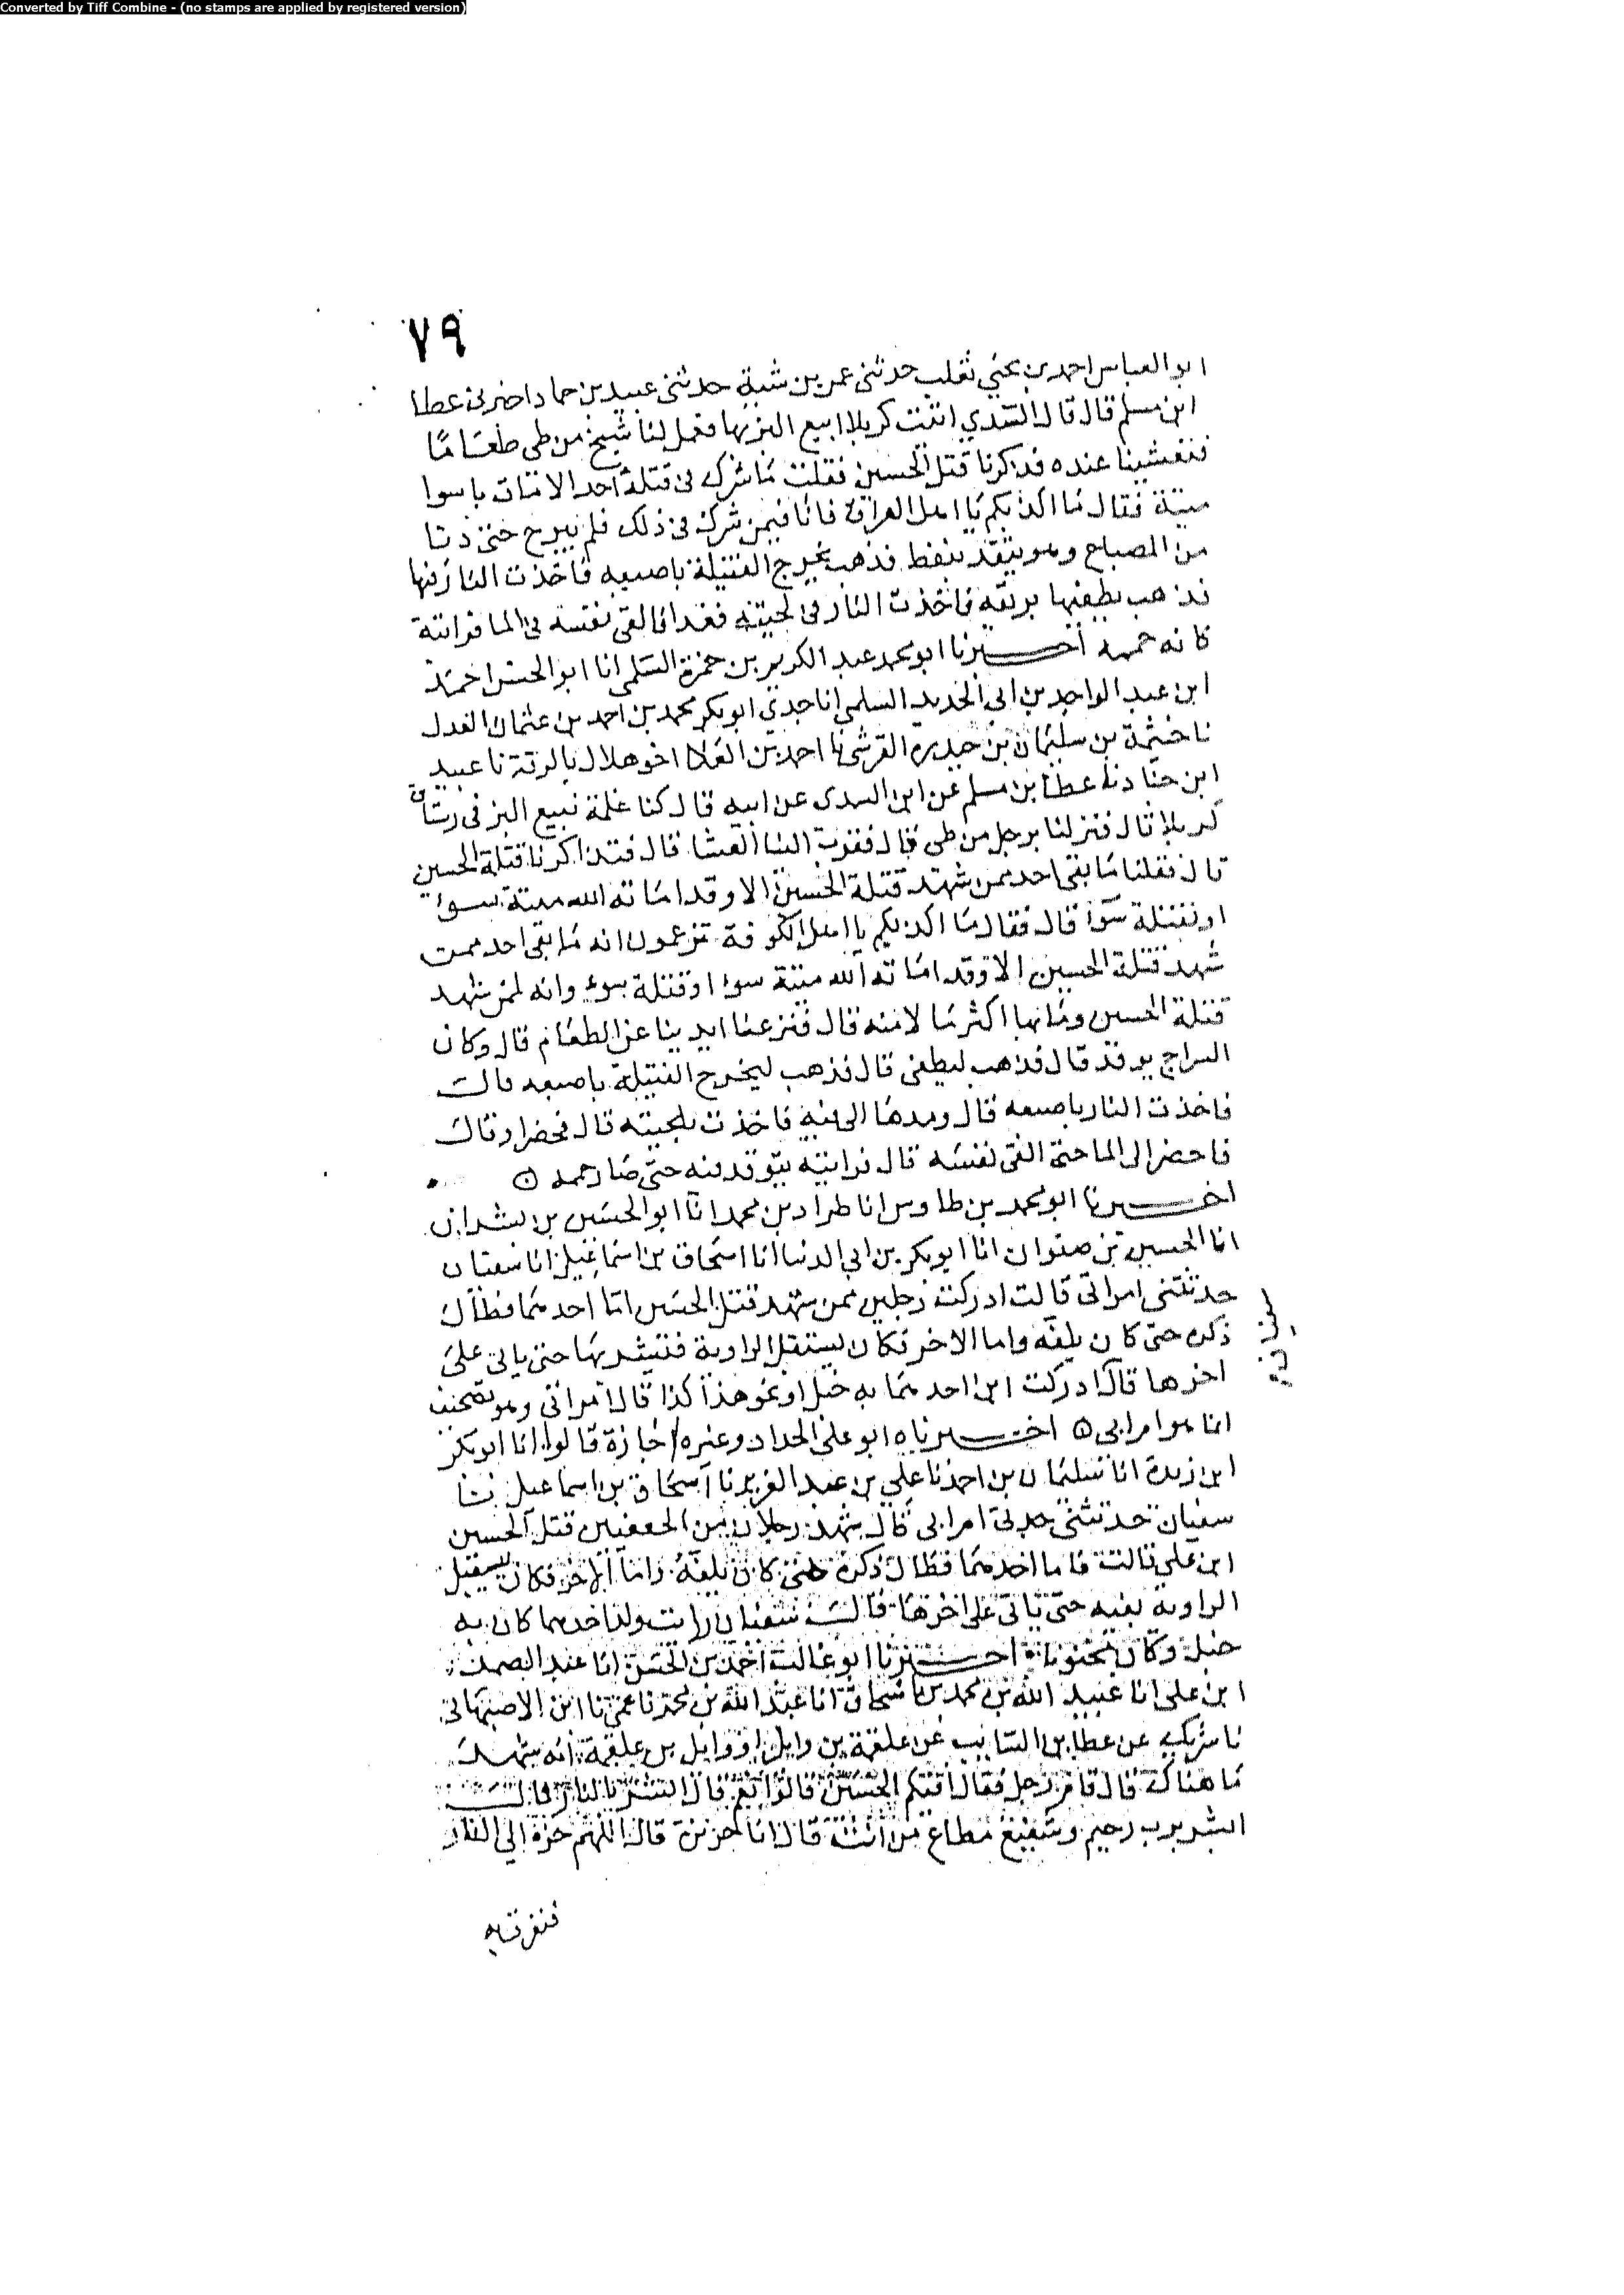 Converted by Tiff Combine - (no stamps are applied by registered version)
٧٩
ابو العباس احمد بن يحيي ثعلب حدثنى عمر بن شبة حدثنى عبيد بن حماد اخبرنى عطا
ابن مسلم قال قال السدي اتيت كربلا ابيع البز بها فعمل لنا شيخ من طى طعاما
فتعشينا عنده فذكرنا قتل الحسين فقلت ما شرك فى قتله احد الا مات باسوا
ميتة فقال ما اكذبكم يا اهل العراق فانا فيمن شرك فى ذلك فلم يبرح حتى دنا
من المصباح وهو يتقد بنفط فذهب يخرج الفتيلة باصبعه فاخذت النار فيها
فذهب يطفيها بريقه فاخذت النار فى لحيته فغدا فالقى نفسه فى الما فرايته
كانه حممه اخبرنا ابو محمد عبد الكريم بن حمزة السلمى انا ابو الحسن احمد
ابن عبد الواحد بن ابى الحديد السلمى انا جدي ابو بكر محمد بن احمد بن عثمان العدل
نا خيثمة بن سليمان بن حيدرة القرشى نا احمد بن العلا اخو هلال بالرقة نا عبيد
ابن جناد نا عطا بن مسلم عن ابن السدى عن ابيه قال كنا غلمة نبيع البز فى رستاق
كربلا قال فنزلنا برجل من طى قال فقرب الينا العشا قال فتذاكرنا قتلة الحسين
قال فقلنا ما بقى احد ممن شهد قتلة الحسين الا وقد اماته الله ميتة سوء
او بقتلة سوا قال فقال ما اكذبكم يا اهل الكوفة تزعمون انه ما بقى احد ممن
شهد قتلة الحسين الا وقد اماته الله ميتة سوء او قتلة سوء وانه لمن شهد
قتلة الحسين وما بها اكثر مالا منه قال فنزعنا ايدينا عن الطعام قال وكان
السراج يوقد قال فذهب ليطفى قال فذهب ليخرج الفتيلة باصبعه قال
فاخذت النار باصبعه قال ومدها الى فيه فاخذت بلحيته قال فحضر او قال
فاحضر الى الما حتى القى نفسه قال فرايته يتوقد فيه حتى صار حممه ⊙
اخبرنا ابو محمد بن طاوس انا طراد بن محمد انا ابو الحسين بن بشران
انا الحسين بن صفوان انا ابو بكر بن ابي الدنيا انا اسحاق بن اسماعيل انا سفيان
حدثتنى امراتى قالت ادركت رجلين ممن شهد قتل الحسين اما احدهما فطال
ذكره حتى كان يلفه واما الاخر فكان يستقبل الراوية فيشربها حتى ياتى على
اخرها قال ادركت ابن احدهما به خبل او نحو هذا كذا قال امراتى وهو تصحيف
انما هو ام ابى ⊙ اخبرناه ابو على الحداد وغيره اجازة قالوا انا ابو بكر
ابن ريدة انا سليمان بن احمد نا علي بن عبد العزيز نا اسحاق بن اسماعيل نا
سفيان حدثتنى جدتى ام ابى قال شهد رجلان من الجعفيين قتل الحسين
ابن علي قالت فاما احدهما فطال ذكره حتى كان يلفه واما الاخر فكان يستقبل
الراوية بفيه حتى ياتى على اخرها قال سفيان رايت ولد احدهما كان به
خبل وكان مجنونا اخبرنا ابو غالب احمد بن الحسن انا عبد الصمد
ابن على انا عبيد الله بن محمد بن اسحاق انا عبد الله بن محمد نا عمى نا ابن الاصبهانى
نا شريك عن عطا بن السايب عن علقمة بن وايل او وايل بن علقمة انه شهد
ما هناك قال قام رجل فقال افيكم الحسين قالوا نعم قال ابشر بالنار قال
ابشر برب رحيم وشفيع مطاع من انت قال انا حويزة قال اللهم حزه الي النار
فنفرت به